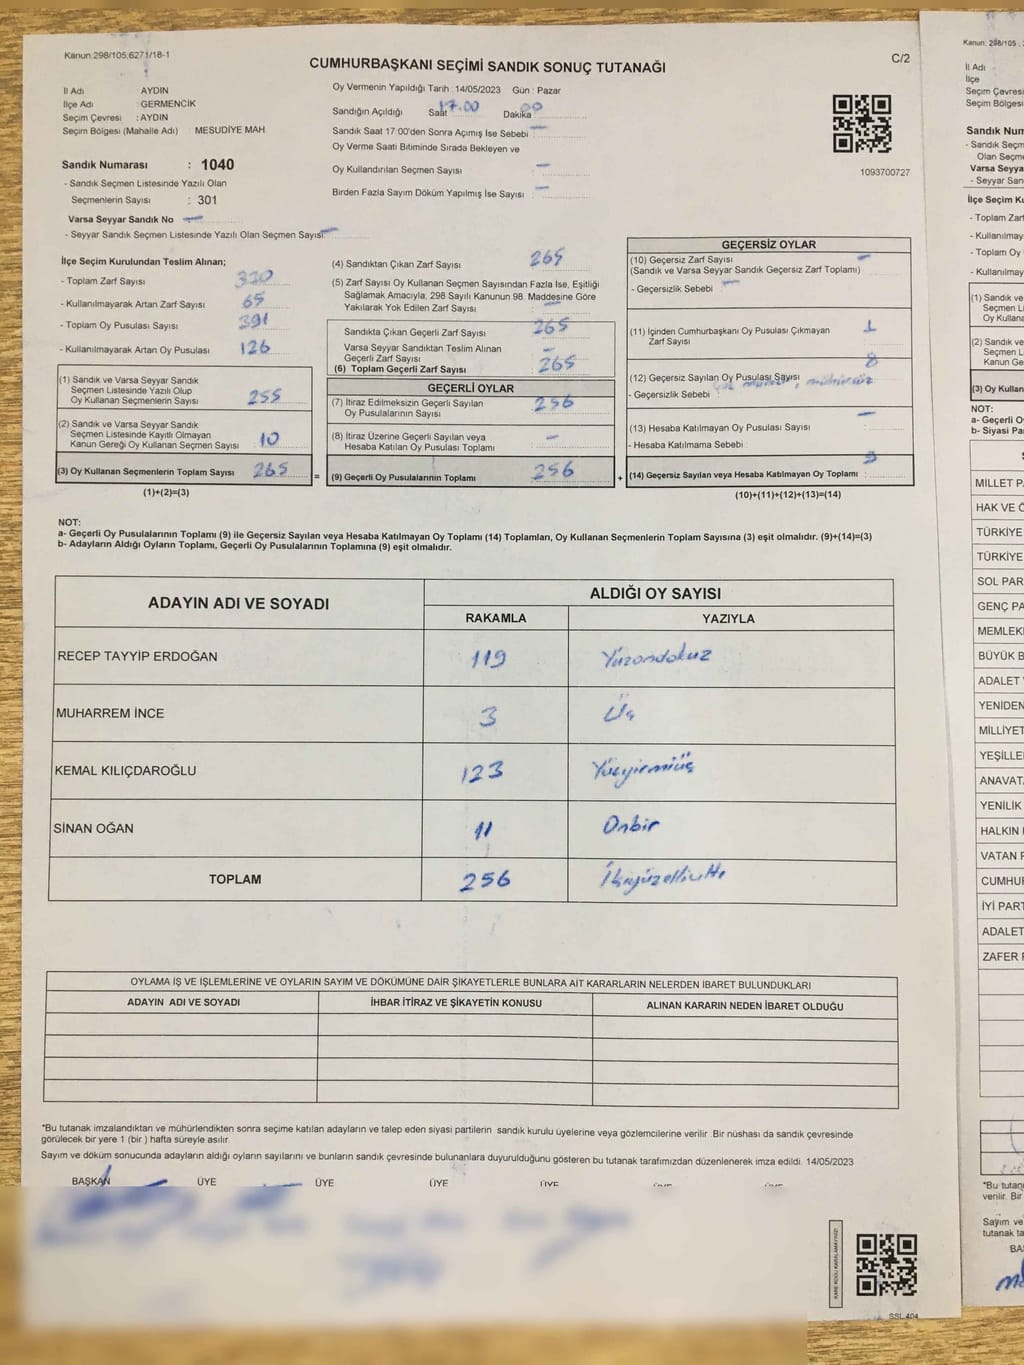 Kanun:298/105,6271/18-1
C/2
CUMHURBAŞKANI SEÇİMİ SANDIK SONUÇ TUTANAĞI
İl Adı : AYDIN
İlçe Adı : GERMENCİK
Seçim Çevresi : AYDIN
Seçim Bölgesi (Mahalle Adı) : MESUDİYE MAH.
Sandık Numarası : 1040
- Sandık Seçmen Listesinde Yazılı Olan
Seçmenlerin Sayısı : 301
Varsa Seyyar Sandık No —
- Seyyar Sandık Seçmen Listesinde Yazılı Olan Seçmen Sayısı: —
Oy Vermenin Yapıldığı Tarih : 14/05/2023 Gün : Pazar
Sandığın Açıldığı Saat 17.00 Dakika 00
Sandık Saat 17:00'den Sonra Açımış İse Sebebi —
Oy Verme Saati Bitiminde Sırada Bekleyen ve
Oy Kullandırılan Seçmen Sayısı : —
Birden Fazla Sayım Döküm Yapılmış İse Sayısı : —
1093700727
İlçe Seçim Kurulundan Teslim Alınan;
- Toplam Zarf Sayısı : 330
- Kullanılmayarak Artan Zarf Sayısı : 65
- Toplam Oy Pusulası Sayısı : 391
- Kullanılmayarak Artan Oy Pusulası : 126
(1) Sandık ve Varsa Seyyar Sandık
Seçmen Listesinde Yazılı Olup
Oy Kullanan Seçmenlerin Sayısı : 255
(2) Sandık ve Varsa Seyyar Sandık
Seçmen Listesinde Kayıtlı Olmayan
Kanun Gereği Oy Kullanan Seçmen Sayısı : 10
(3) Oy Kullanan Seçmenlerin Toplam Sayısı : 265
(1)+(2)=(3)
(4) Sandıktan Çıkan Zarf Sayısı : 265
(5) Zarf Sayısı Oy Kullanan Seçmen Sayısından Fazla İse, Eşitliği
Sağlamak Amacıyla, 298 Sayılı Kanunun 98. Maddesine Göre
Yakılarak Yok Edilen Zarf Sayısı : —
Sandıkta Çıkan Geçerli Zarf Sayısı : 265
Varsa Seyyar Sandıktan Teslim Alınan
Geçerli Zarf Sayısı : —
(6) Toplam Geçerli Zarf Sayısı : 265
GEÇERLİ OYLAR
(7) İtiraz Edilmeksizin Geçerli Sayılan
Oy Pusulalarının Sayısı : 256
(8) İtiraz Üzerine Geçerli Sayılan veya
Hesaba Katılan Oy Pusulası Toplamı : —
= (9) Geçerli Oy Pusulalarının Toplamı : 256 +
GEÇERSİZ OYLAR
(10) Geçersiz Zarf Sayısı : —
(Sandık ve Varsa Seyyar Sandık Geçersiz Zarf Toplamı)
- Geçersizlik Sebebi : —
(11) İçinden Cumhurbaşkanı Oy Pusulası Çıkmayan : 1
Zarf Sayısı
8
(12) Geçersiz Sayılan Oy Pusulası Sayısı
- Geçersizlik Sebebi : mühürsüz
(13) Hesaba Katılmayan Oy Pusulası Sayısı : —
- Hesaba Katılmama Sebebi :
(14) Geçersiz Sayılan veya Hesaba Katılmayan Oy Toplamı : 9
(10)+(11)+(12)+(13)=(14)
NOT:
a- Geçerli Oy Pusulalarının Toplamı (9) ile Geçersiz Sayılan veya Hesaba Katılmayan Oy Toplamı (14) Toplamları, Oy Kullanan Seçmenlerin Toplam Sayısına (3) eşit olmalıdır. (9)+(14)=(3)
b- Adayların Aldığı Oyların Toplamı, Geçerli Oy Pusulalarının Toplamına (9) eşit olmalıdır.
ADAYIN ADI VE SOYADI ALDIĞI OY SAYISI
RAKAMLA YAZIYLA
RECEP TAYYİP ERDOĞAN 119 Yüzondokuz
MUHARREM İNCE 3 Üç
KEMAL KILIÇDAROĞLU 123 Yüzyirmiüç
SİNAN OĞAN 11 Onbir
TOPLAM 256 İkiyüzellialtı
OYLAMA İŞ VE İŞLEMLERİNE VE OYLARIN SAYIM VE DÖKÜMÜNE DAİR ŞİKAYETLERLE BUNLARA AİT KARARLARIN NELERDEN İBARET BULUNDUKLARI
ADAYIN ADI VE SOYADI İHBAR İTİRAZ VE ŞİKAYETİN KONUSU ALINAN KARARIN NEDEN İBARET OLDUĞU
*Bu tutanak imzalandıktan ve mühürlendikten sonra seçime katılan adayların ve talep eden siyasi partilerin sandık kurulu üyelerine veya gözlemcilerine verilir. Bir nüshası da sandık çevresinde
görülecek bir yere 1 (bir) hafta süreyle asılır.
Sayım ve döküm sonucunda adayların aldığı oyların sayılarını ve bunların sandık çevresinde bulunanlara duyurulduğunu gösteren bu tutanak tarafımızdan düzenlenerek imza edildi. 14/05/2023
BAŞKAN ÜYE ÜYE ÜYE ÜYE
KARE KODU KARALAMAYINIZ!
SSL 404
Kanun: 298/105,
İl Adı
İlçe
Seçim Çevresi
Seçim Bölgesi
Sandık Num
- Sandık Seçm
Olan Seçme
Varsa Seyya
- Seyyar San
İlçe Seçim Ku
- Toplam Zarf
- Kullanılmay
- Toplam Oy
- Kullanılmay
(1) Sandık ve
Seçmen Li
Oy Kullana
(2) Sandık ve
Seçmen L
Kanun Ge
(3) Oy Kullan
NOT:
a- Geçerli O
b- Siyasi Pa
MİLLET P
HAK VE Ö
TÜRKİYE
TÜRKİYE
SOL PAR
GENÇ PA
MEMLEK
BÜYÜK B
ADALET
YENİDEN
MİLLİYET
YEŞİLLE
ANAVAT
YENİLİK
HALKIN
VATAN P
CUMHU
İYİ PART
ADALET
ZAFER P
*Bu tutana
verilir. Bir
Sayım ve
tutanak ta
BA